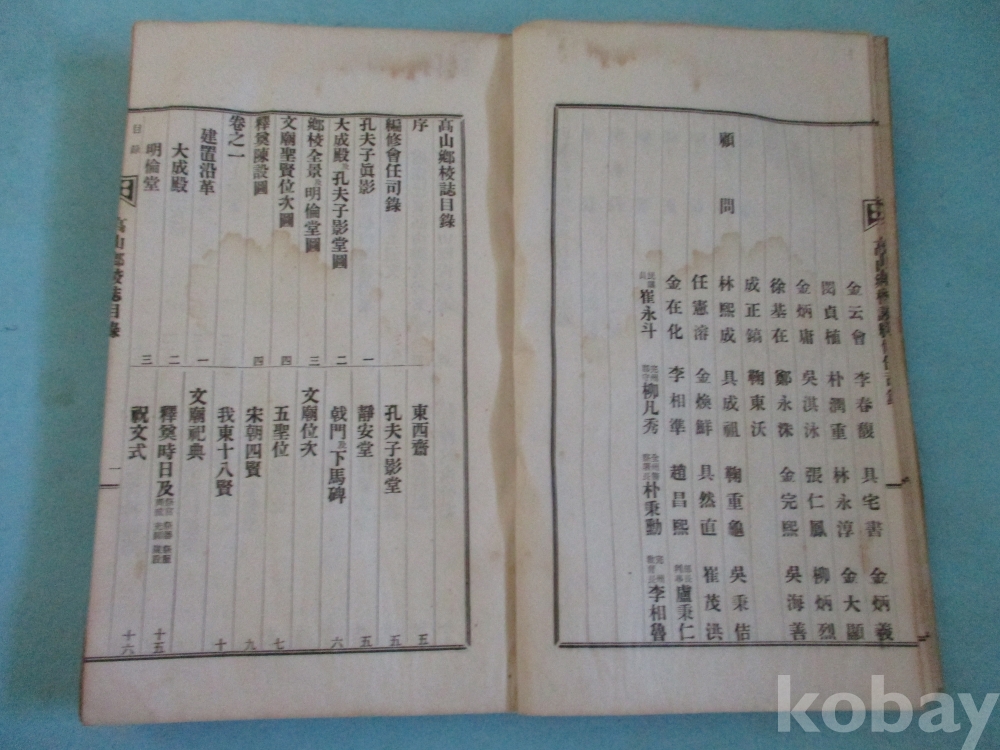 金云會 李春馥 具宅書 金炳義
閔貞植 朴潤重 林永淳 金大顯
金炳庸 吳淇泳 張仁鳳 柳炳烈
徐基在 鄭永洙 金完熙 吳海善
成正鎬 鞠東沃
顧問 林熙成 具成祖 鞠重龜 吳秉佶
任憲溶 金煥鮮 具然直 崔茂洪
金在化 李相準 趙昌熙 盧秉仁
崔永斗 完州郡守 柳凡秀 朴秉勳 完州教育長 李相魯
高山鄉校誌目錄
序
編修會任司錄
孔夫子眞影 一
大成殿及孔夫子影堂圖 二
鄉校全景及明倫堂圖 三
文廟聖賢位次圖 四
釋奠陳設圖 四
卷之一
建置沿革 一
大成殿 二
明倫堂 三
東西齋 五
孔夫子影堂 五
靜安堂 五
戟門及下馬碑 六
文廟位次
五聖位 七
宋朝四賢 九
我東十八賢 十
文廟祀典
釋奠時日及 十五
祝文式 十六
目錄
高山鄉校誌目錄
一
kobay